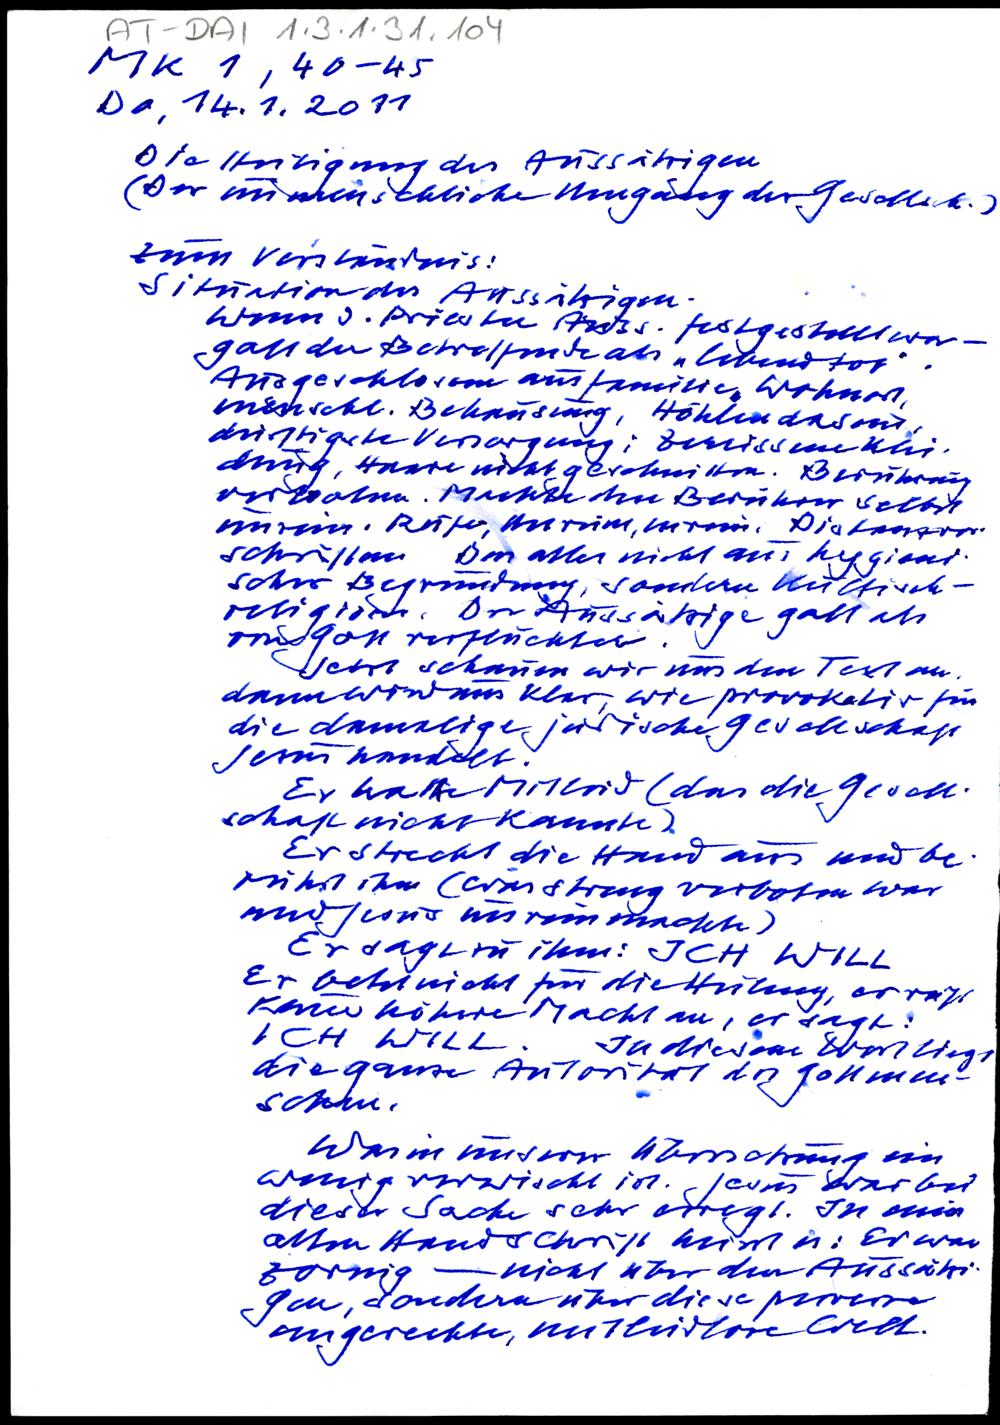 AT-DAI 1.3.1.31.104
MK 1, 40-45
Do, 14.1.2011
Die Heiligung des Aussätzigen
(Der unmenschliche Umgang der Gesellsch.)
Zum Verständnis:
Situation des Aussätzigen.
Wenn v. Priester Auss. festgestellt war -
galt der Betreffende als "lebend tot".
Ausgeschlossen aus Familie, Wohnort,
menschl. Behausung, Höhlendasein,
dürftigste Versorgung; zerrissene Klei-
dung, Haare nicht geschnitten. Berührung
verboten. Machte den Berührer selbst
unrein. Rufe, unrein, unrein. Distanzvor-
schriften Das alles nicht aus hygieni-
scher Begründung, sondern kultisch-
religiös. Der Aussätzige galt als
von Gott verfluchter.
Jetzt schauen wir uns den Text an.
dann wird uns klar, wie provokativ für
die damalige jüdische Gesellschaft
Jesus handelt.
Er hatte Mitleid (das die Gesell-
schaft nicht kannte)
Er streckt die Hand aus und be-
rührt ihn (was streng verboten war
und Jesus unrein machte)
Er sagt zu ihm: ICH WILL
Er betet nicht für die Heilung, er ruft
keine höhere Macht an, er sagt:
ICH WILL. In diesem Wort liegt
die ganze Autorität des Gottmen-
schen.
Was in unserer Übersetzung ein
wenig verwischt ist. Jesus war bei
dieser Sache sehr erregt. In einer
alten Handschrift heisst es: Er war
zornig — nicht über den Aussätzi-
gen, sondern über diese perverse
ungerechte, mitleidlose Welt.